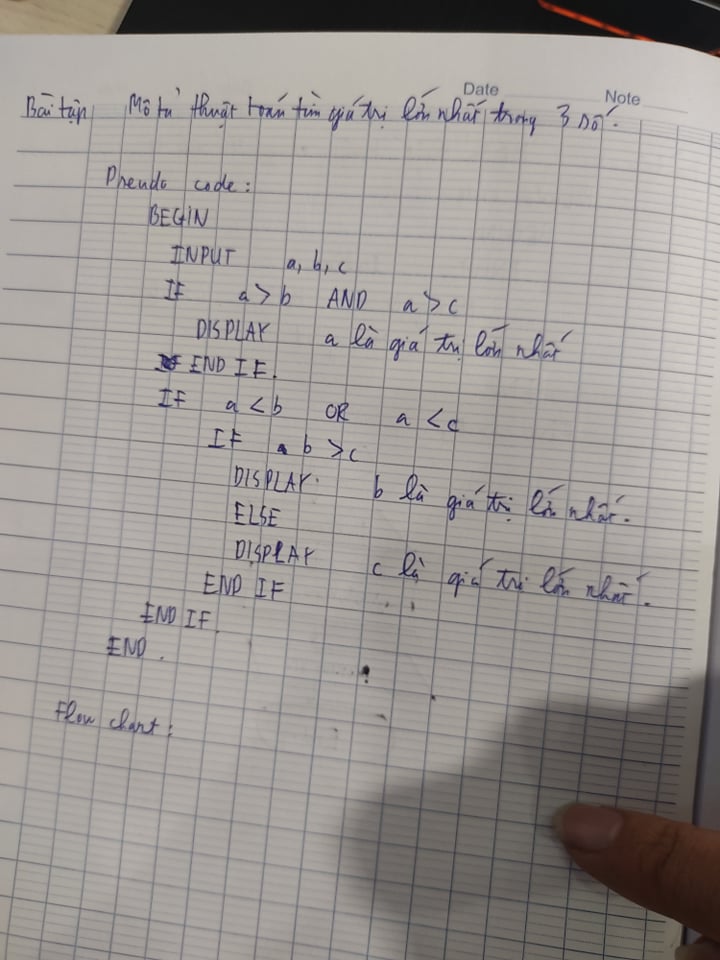 Date Note
Bài tập Mô tả thuật toán tìm giá trị lớn nhất trong 3 số.
Pseudo code:
BEGIN
INPUT a, b, c
IF a > b AND a > c
DISPLAY a là giá trị lớn nhất
END IF.
IF a < b OR a < c
IF b > c
DISPLAY b là giá trị lớn nhất.
ELSE
DISPLAY c là giá trị lớn nhất.
END IF
END IF.
END.
Flow chart: